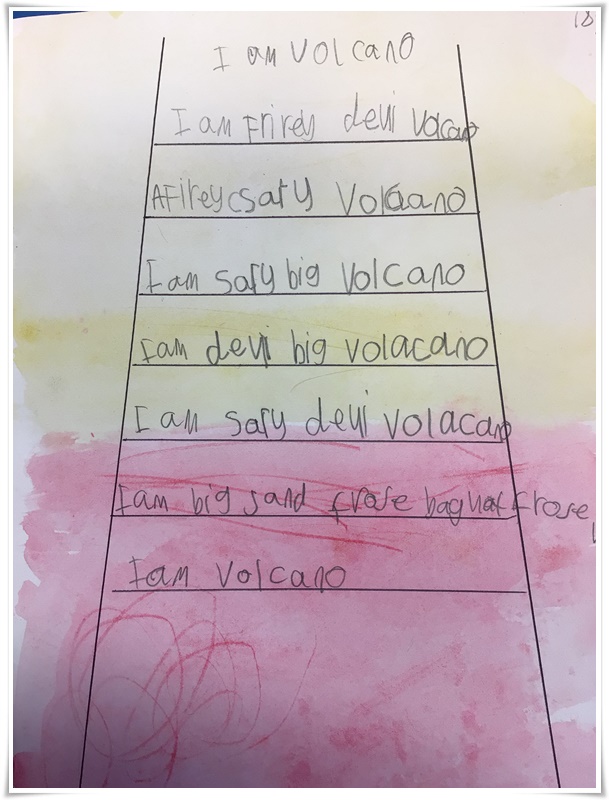 18
I am Volcano
I am Frirey devi Volcano
A Firey csary Volcano
I am sary big Volcano
I am devi big volacano
I am sary devi volacano
I am big sand frose bag hat frose
I am Volcano